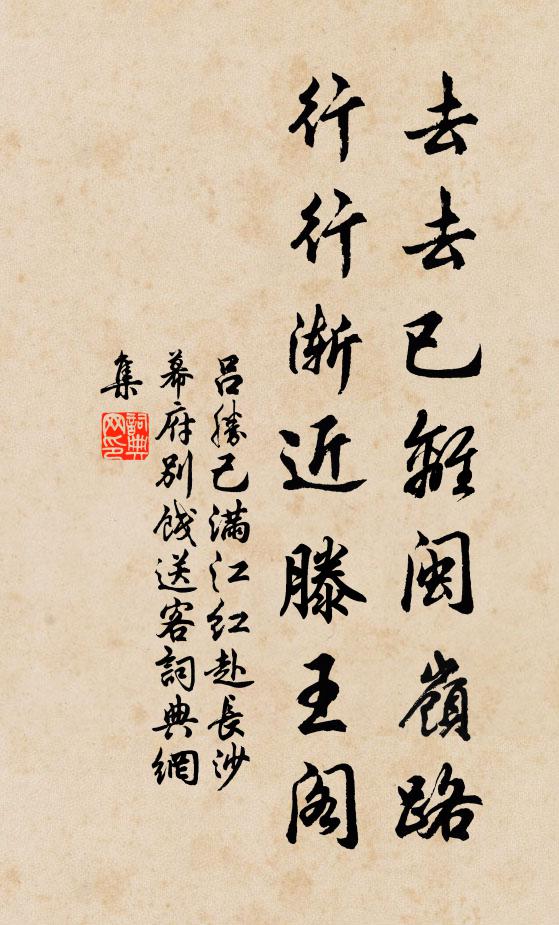 去去已離闽嶺路
行行渐近滕王阁
吕勝己满江红赴長沙
幕府别饯送客詞典網
集
詞典
网印